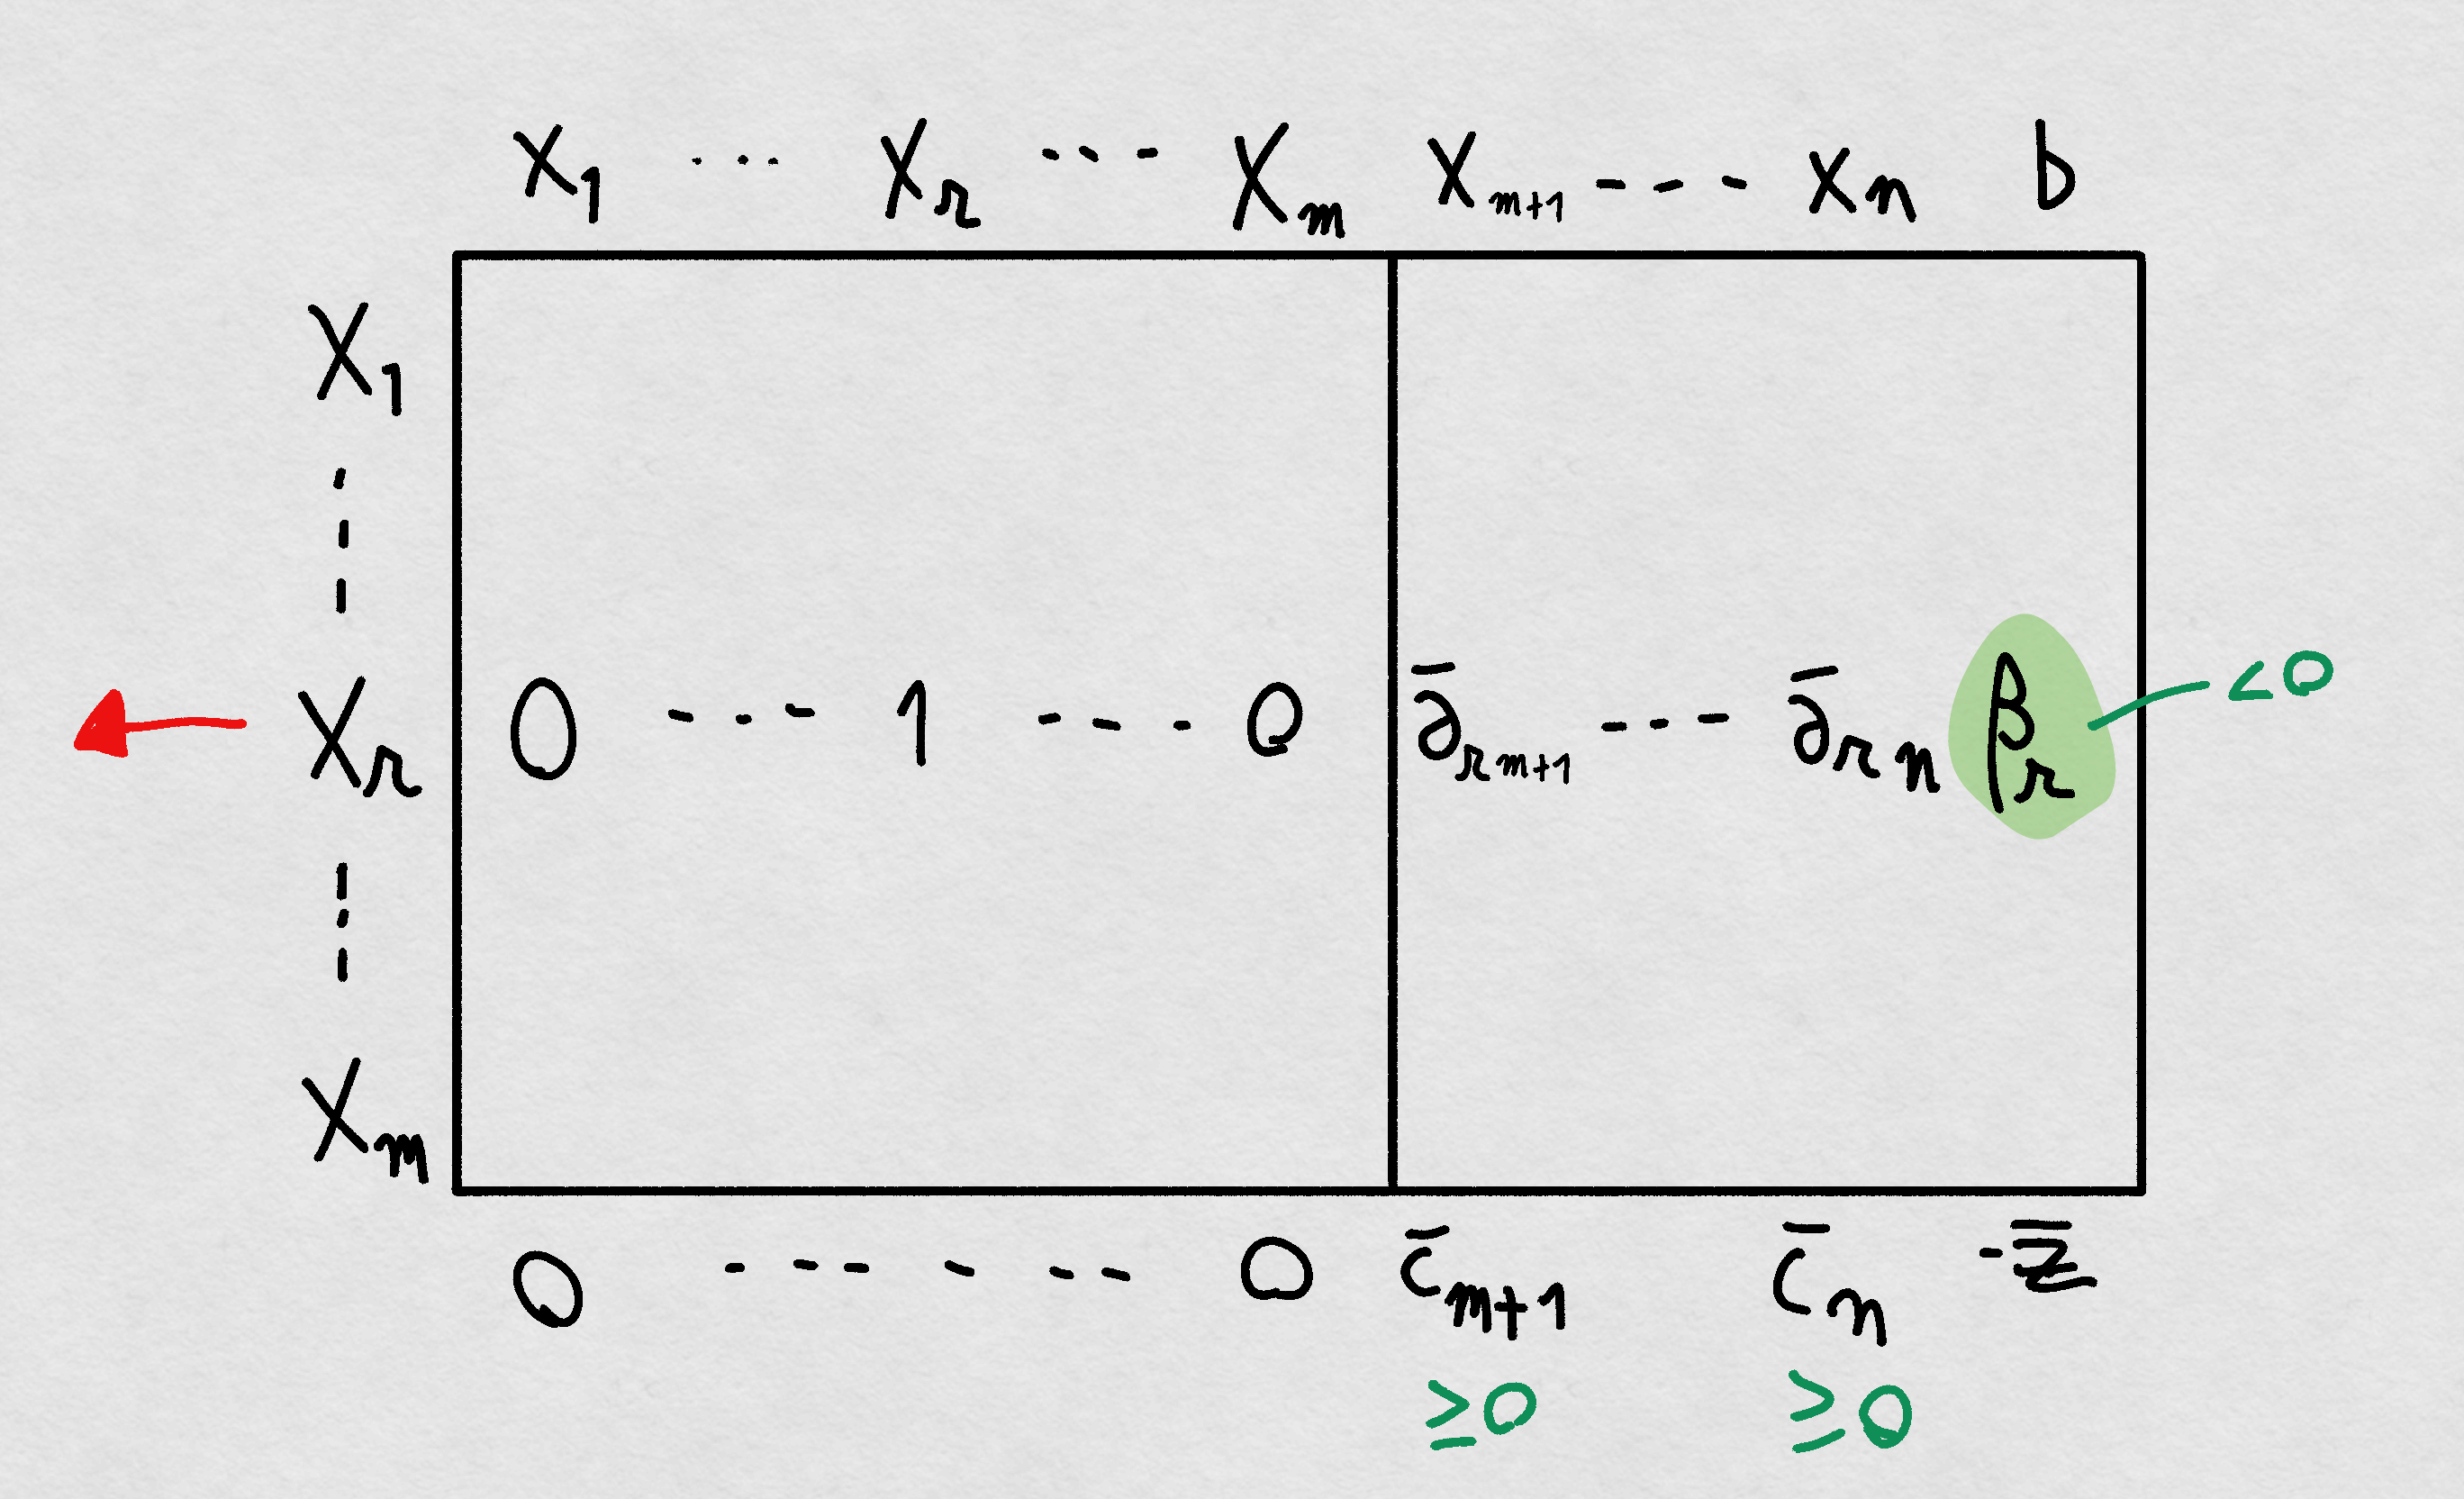 X₁ ... Xᵣ --- Xₘ Xₘ₊₁ --- Xₙ b
X₁
Xᵣ 0 --- 1 --- 0 ā_{r m+1} --- ā_{r n} βᵣ <0
Xₘ
0 ------ 0 c̄ₘ₊₁ c̄ₙ -z̄
≥0 ≥0